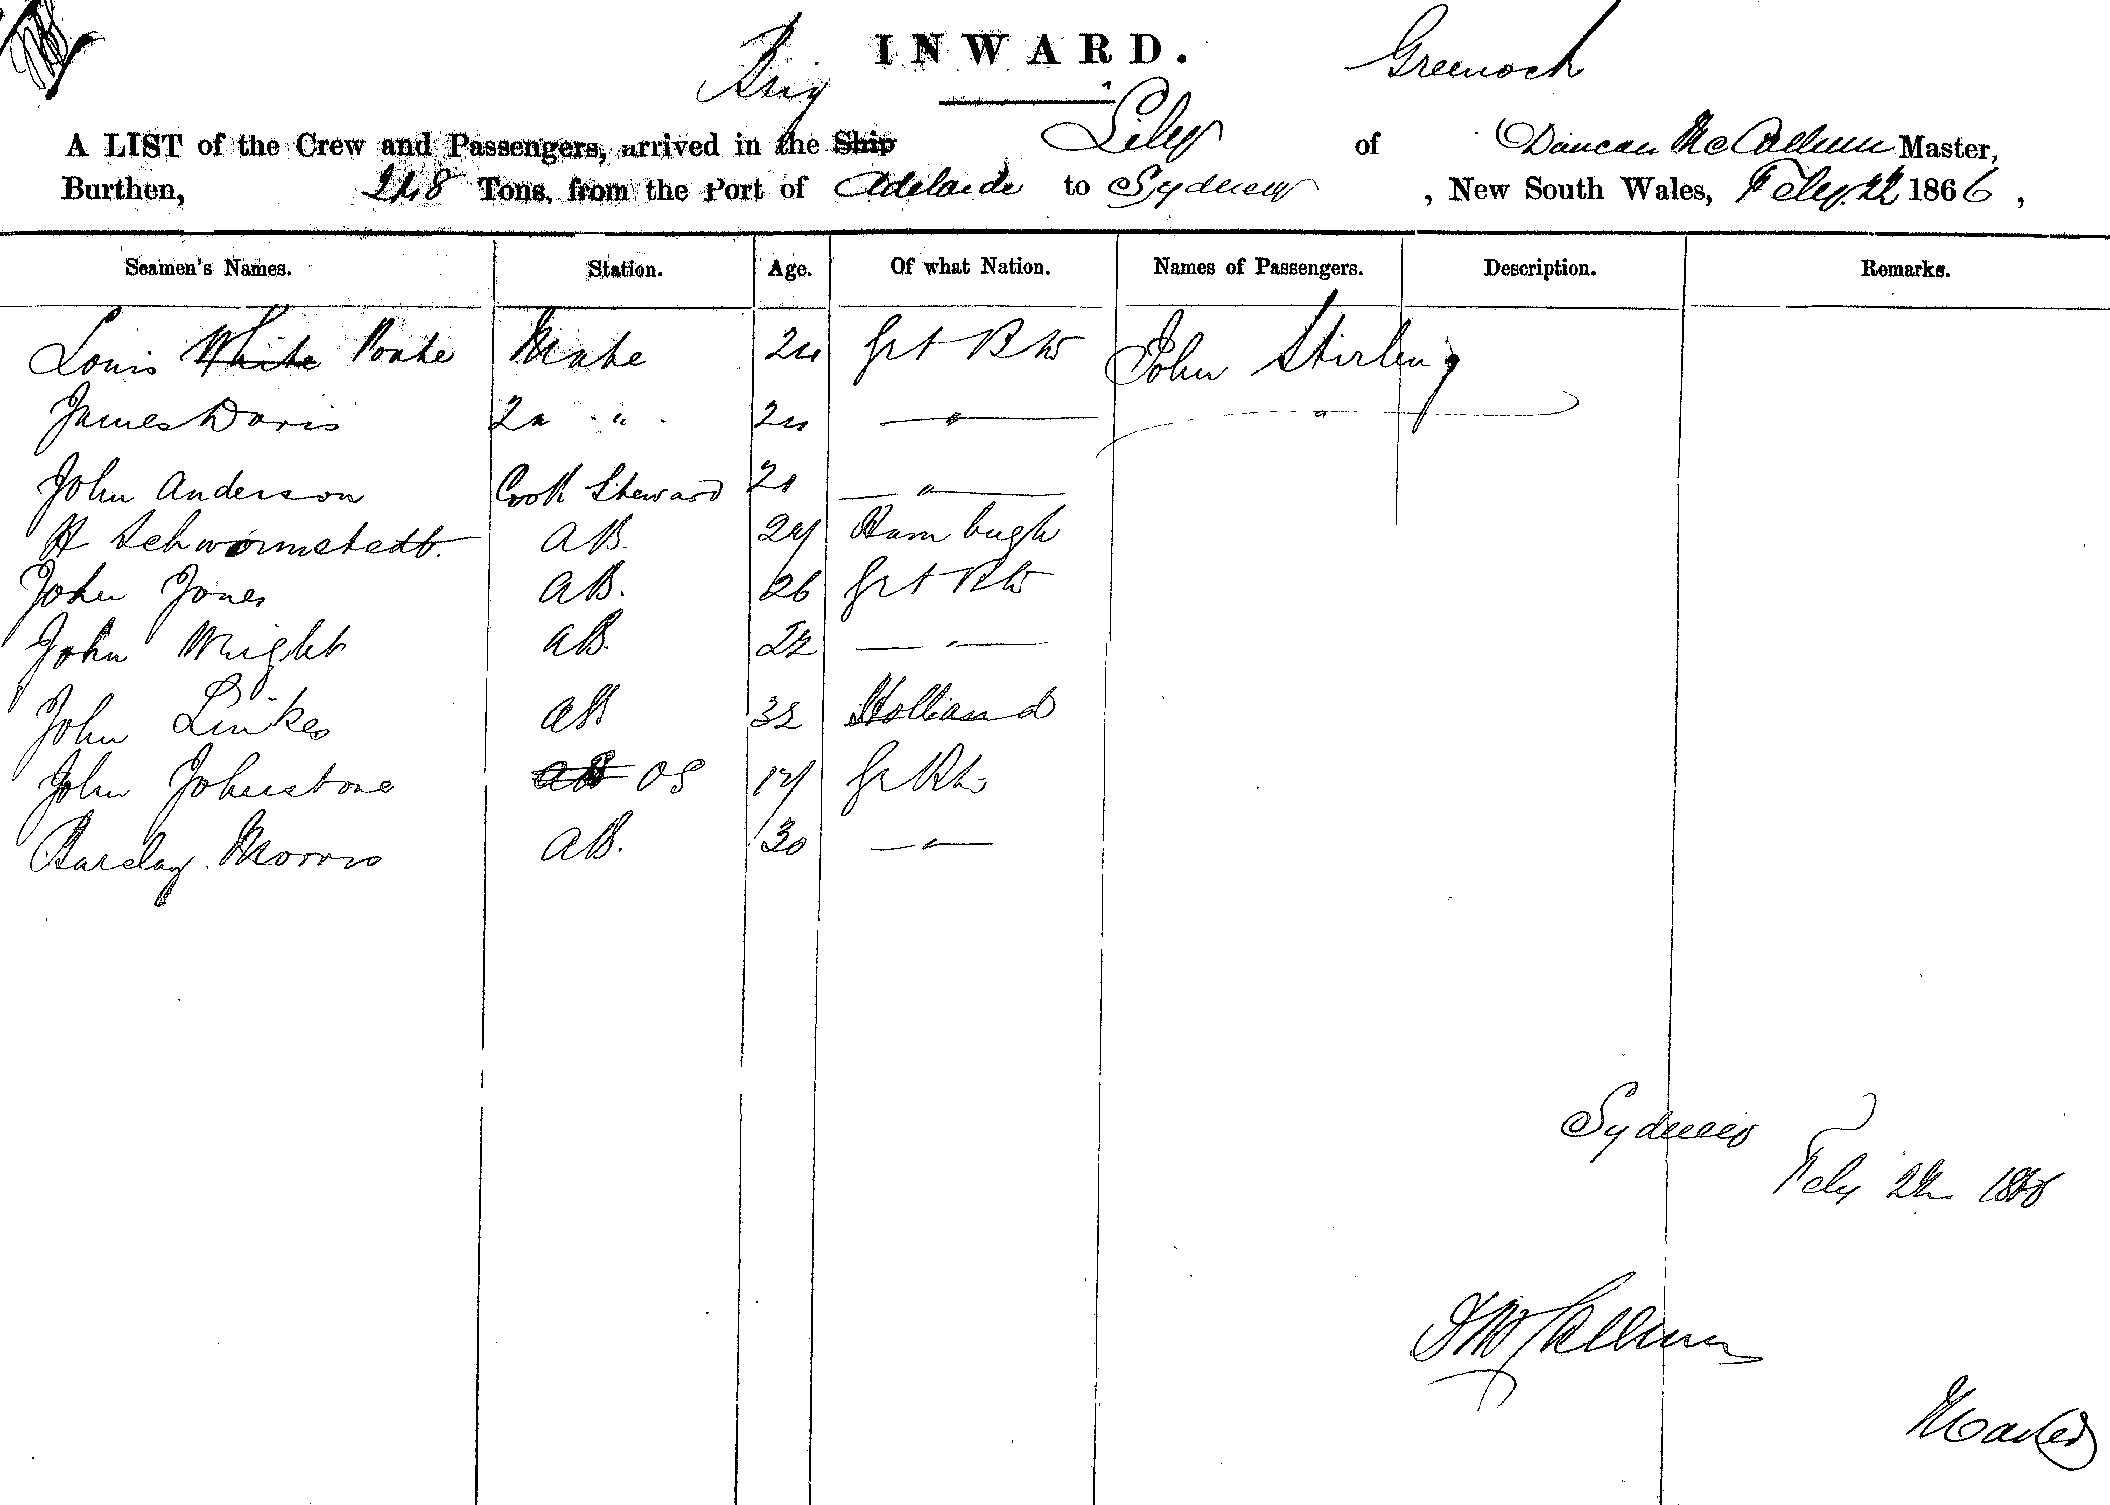 INWARD.
Brig Greenock
A LIST of the Crew and Passengers, arrived in the Ship Lily of Duncan McCallum Master,
Burthen, 248 Tons, from the Port of Adelaide to Sydney , New South Wales, Feby. 22 1866 ,
Seamen's Names. Station. Age. Of what Nation. Names of Passengers. Description. Remarks.
Louis White Mate 24 Grt Btn John Stirling
James Davis 2n " 24 " "
John Anderson Cook Steward "
H AB. 27 Hamburgh
John Jones AB. 26 Grt Btn
John Wright AB. 22 "
John AB 32 Holland
John Johnstone AB OS 17 Gr Btn
Barclay Morris AB. 30 "
Sydney
Feby 22 1866
D McCallum
Master